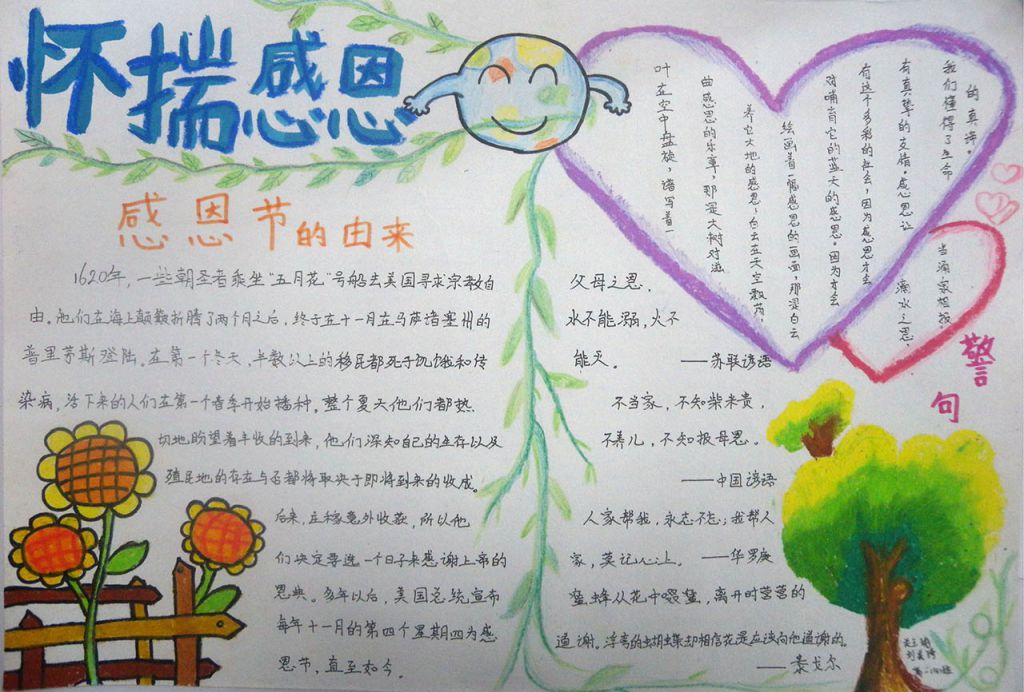 怀揣感恩
感恩节的由来
1620年,一些朝圣者乘坐“五月花”号船去美国寻求宗教自
由。他们在海上颠簸折腾了两个月之后,终于在十一月在马萨诸塞州的
普里茅斯登陆。在第一个冬天,半数以上的移民都死于饥饿和传
染病,活下来的人们在第一个春季开始播种,整个夏天他们都热
切地盼望着丰收的到来,他们深知自己的生存以及
殖民地的存在与否都将取决于即将到来的收成。
后来,庄稼意外收获,所以他
们决定要选一个日子来感谢上帝的
恩典。多年以后,美国总统宣布
每年十一月的第四个星期四为感
恩节,直至如今。
叶在空中盘旋,谱写着一
曲感恩的乐章,那是大树对滋
养它大地的感恩;白云在蓝天空飘荡,
绘画着一幅感恩的画面,那是白云
对哺育它的蓝天的感恩。因为才会
有这个多彩的社会,因为感恩才会
有真挚的友情。感恩让
我们懂得了生命
的真谛。
滴水之恩,
当涌泉相报。
警句
父母之恩,
水不能溺,火不
能灭。 ——苏联谚语
不当家,不知柴米贵,
不养儿,不知报母恩。
——中国谚语
人家帮我,永志不忘;我帮人
家,莫记心上。 ——华罗庚
蜜蜂从花中啜蜜,离开时营营的
道谢。浮夸的蝴蝶却相信花是应该向他道谢的。
——泰戈尔